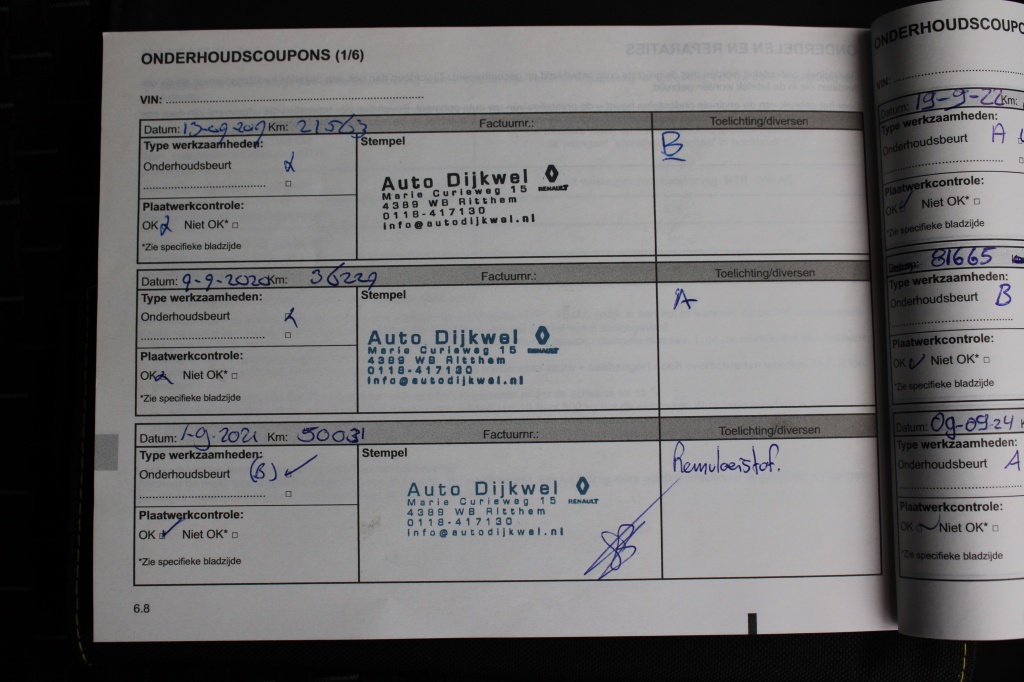 ONDERHOUDSCOUPONS (1/6)
VIN:
Datum: 13-09-2019 Km: 21563 Factuurnr.: Toelichting/diversen
Type werkzaamheden:
Onderhoudsbeurt
Plaatwerkcontrole:
OK Niet OK*
*Zie specifieke bladzijde
Stempel
Auto Dijkwel
Marie Curieweg 15 RENAULT
4389 WB Ritthem
0118-417130
info@autodijkwel.nl
B
Datum: 9-9-2020 Km: 36229 Factuurnr.: Toelichting/diversen
Type werkzaamheden:
Onderhoudsbeurt
Plaatwerkcontrole:
OK Niet OK*
*Zie specifieke bladzijde
Stempel
Auto Dijkwel
Marie Curieweg 15 RENAULT
4389 WB Ritthem
0118-417130
info@autodijkwel.nl
A
Datum: 1-9-2021 Km: 50031 Factuurnr.: Toelichting/diversen
Type werkzaamheden:
Onderhoudsbeurt (B)
Plaatwerkcontrole:
OK Niet OK*
*Zie specifieke bladzijde
Stempel
Auto Dijkwel
Marie Curieweg 15 RENAULT
4389 WB Ritthem
0118-417130
info@autodijkwel.nl
Remvloeistof.
6.8
ONDERHOUDSCOUPO
VIN:
Datum: 19-9-22 Km:
Type werkzaamheden:
Onderhoudsbeurt A
Plaatwerkcontrole:
OK Niet OK*
*Zie specifieke bladzijde
81665
Type werkzaamheden:
Onderhoudsbeurt B
Plaatwerkcontrole:
OK Niet OK*
*Zie specifieke bladzijde
Datum: 09-09-24
Type werkzaamheden:
Onderhoudsbeurt A
Plaatwerkcontrole:
OK Niet OK*
*Zie specifieke bladzijde